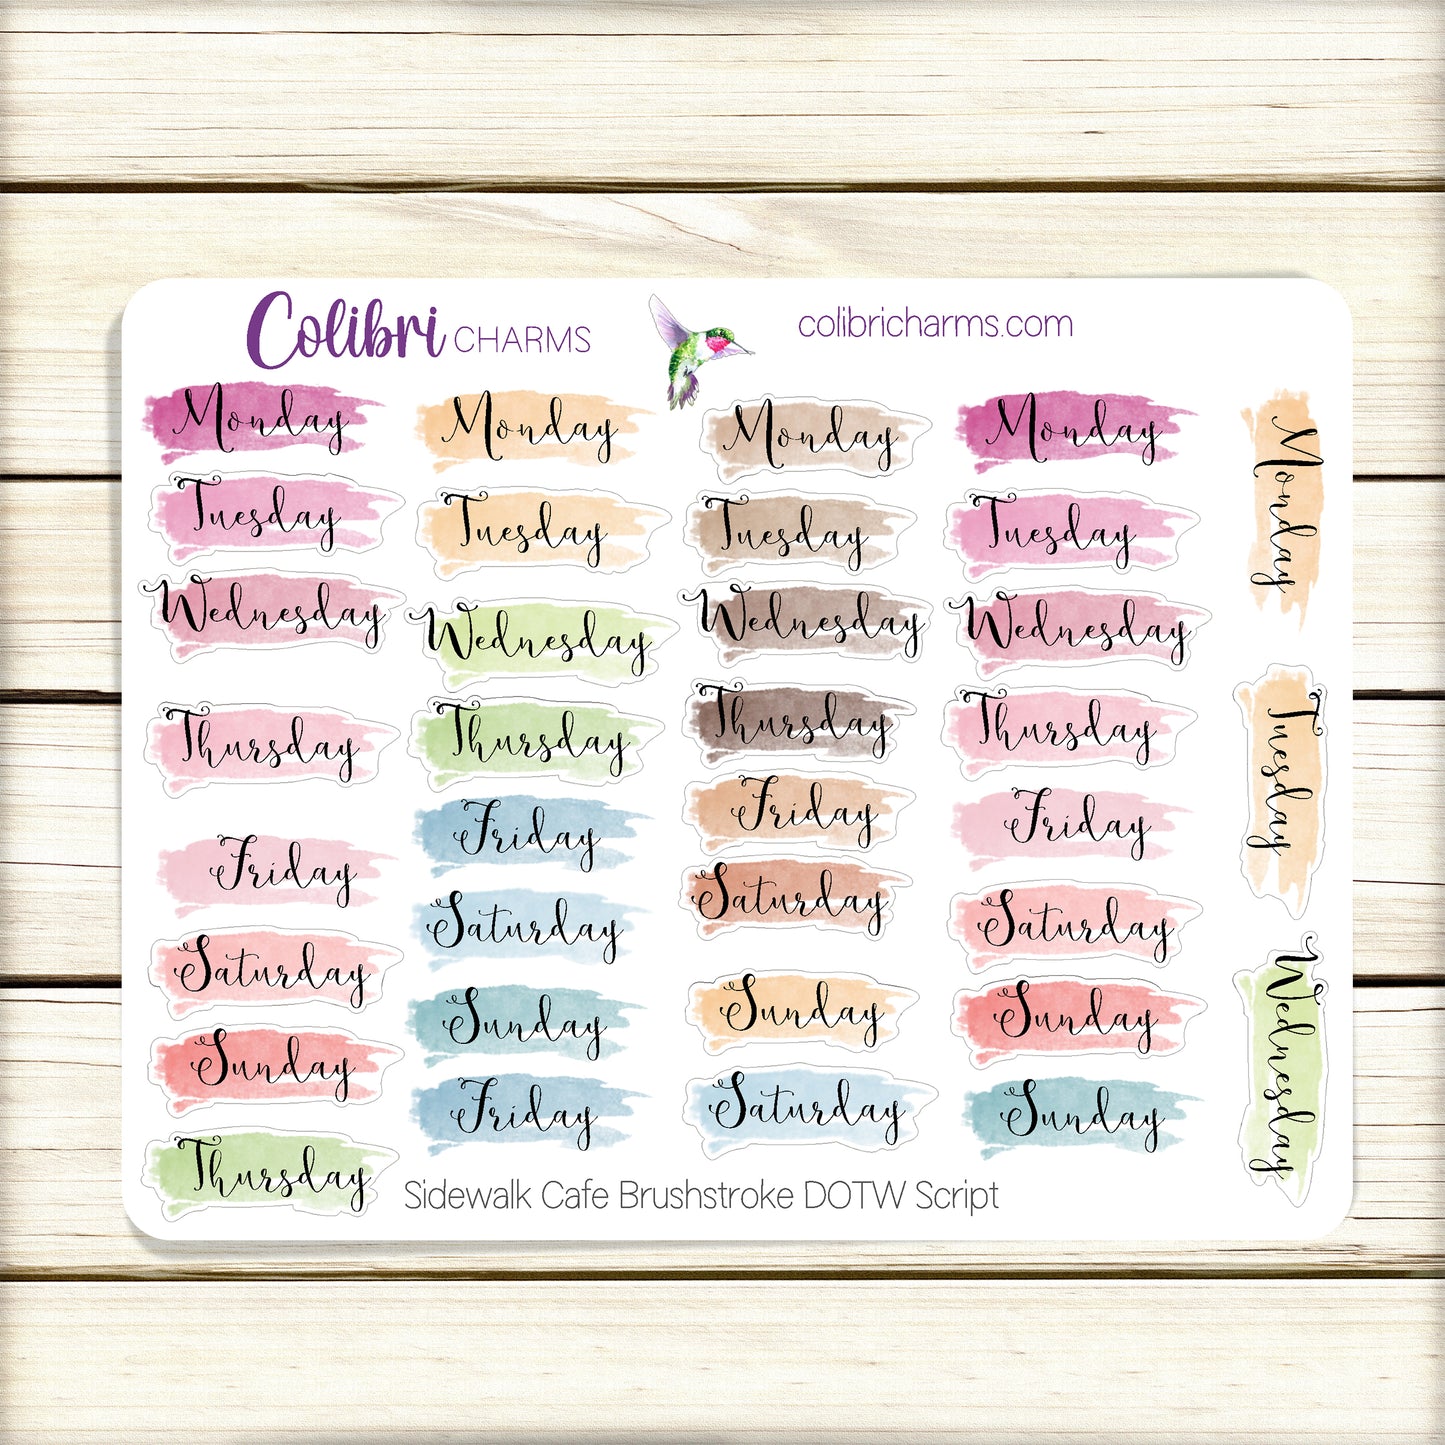 Colibri CHARMS
colibricharms.com
Monday
Tuesday
Wednesday
Thursday
Friday
Saturday
Sunday
Thursday
Monday
Tuesday
Wednesday
Thursday
Friday
Saturday
Sunday
Friday
Monday
Tuesday
Wednesday
Thursday
Friday
Saturday
Sunday
Saturday
Monday
Tuesday
Wednesday
Thursday
Friday
Saturday
Sunday
Sunday
Monday
Tuesday
Wednesday
Sidewalk Cafe Brushstroke DOTW Script